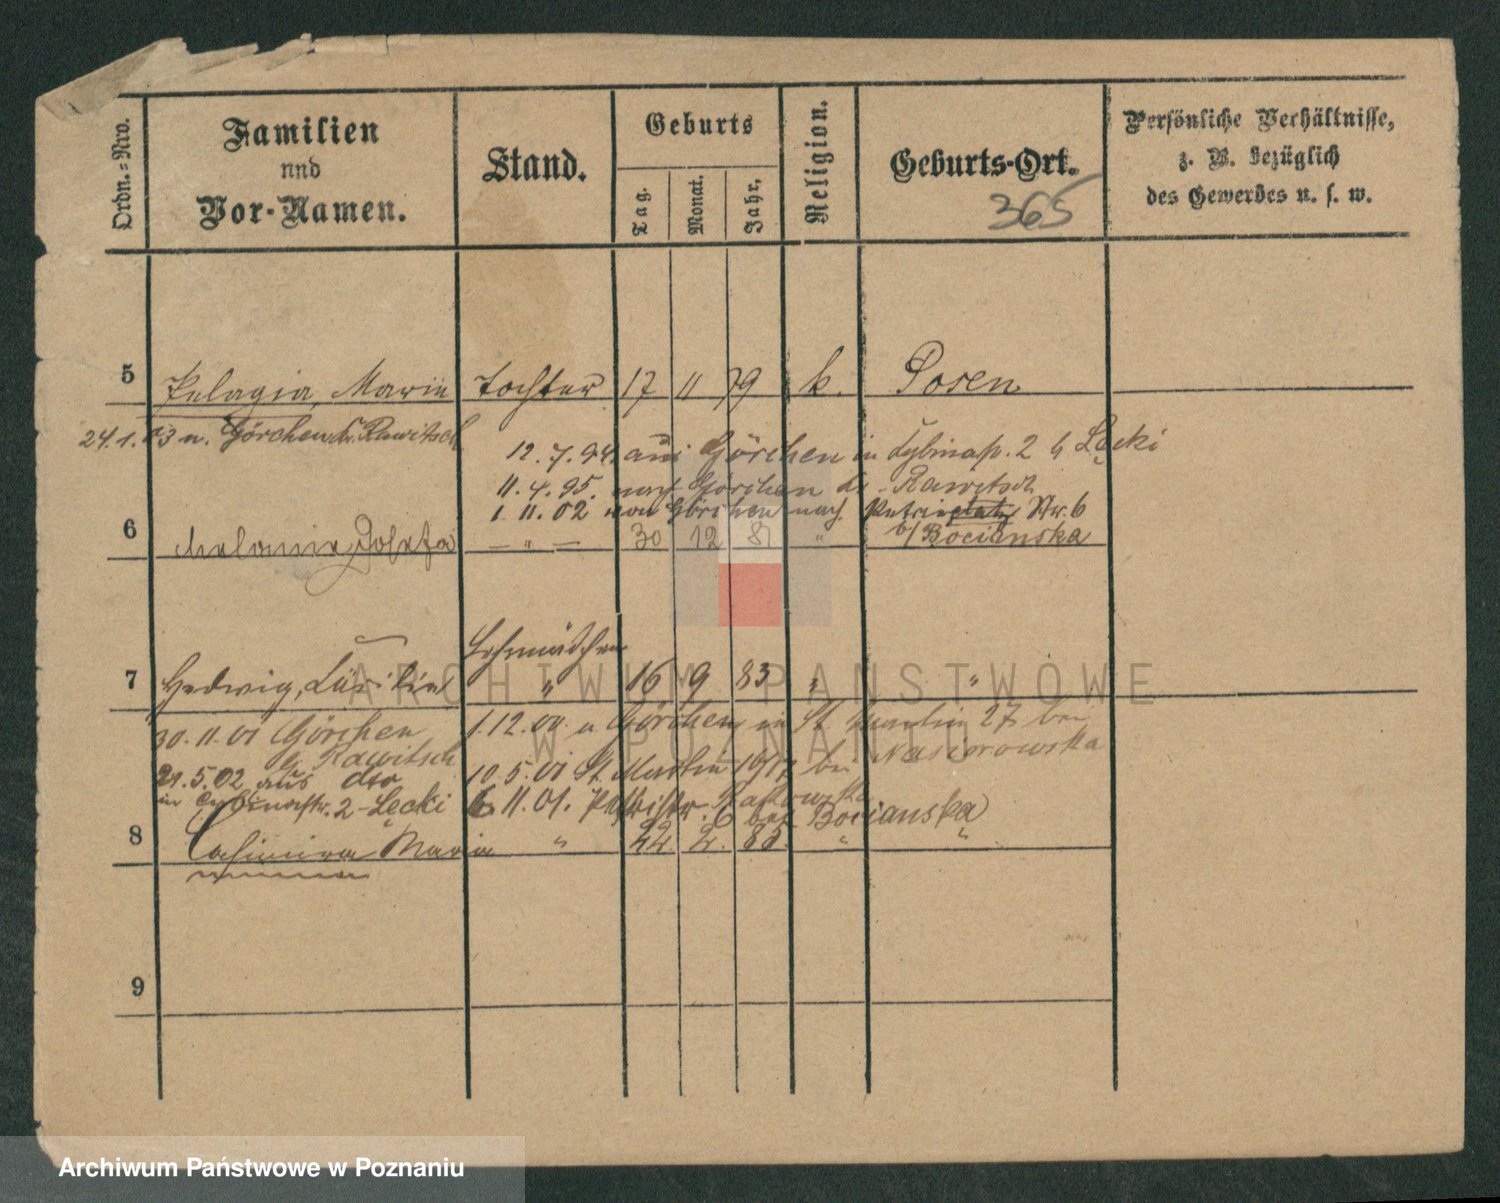 Ordn.-Nro.
Familien
und
Vor-Namen.
Stand.
Geburts
Tag.
Monat.
Jahr.
Religion.
Geburts-Ort.
365
Persönliche Verhältnisse,
z. B. bezüglich
des Gewerbes u. s. w.
5 Pelagia, Marie Tochter 17 11 79 k. Posen
24.1.03 n. Görchen Kr. Rawitsch
12.7.94. aus Görchen in Cybinastr. 2 b Łęcki
11.4.95. nach Görchen Kr. Rawitsch
1.11.02 von Görchen nach Petriplatz Nr. 6
b/ Bocianska
6 Melanie, Josefa — " — 30 12 81 "
Lehrmädchen
7 Hedwig, Cäcilie " 16 9 83 " "
30.11.01 Görchen
Kr. Rawitsch
1.12.00. a Görchen in St. Martin 27 bei
Nasierowska
21.5.02 aus dto
10.5.01 St. Martin bei
in Cybinastr. 2 - Łęcki
6.11.01. Petristr. 6 bei Bocianska
8 Casimira Maria " 22 2. 85. " "
9
ARCHIWUM PAŃSTWOWE
W POZNANIU
Archiwum Państwowe w Poznaniu